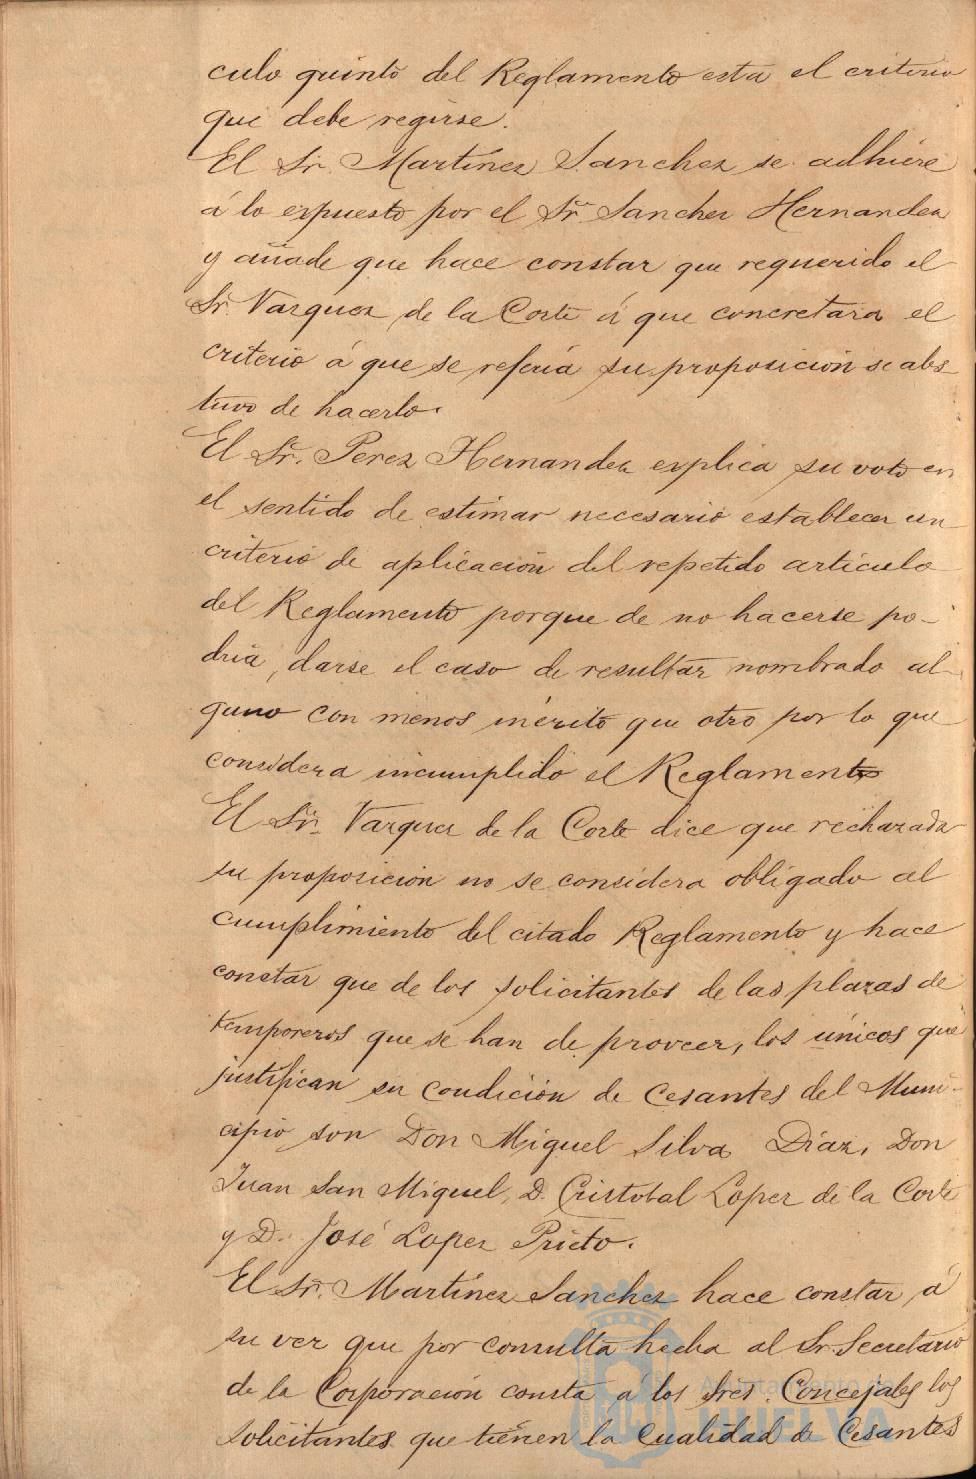 culo quinto del Reglamento está el criterio
que debe regirse.
El Sr. Martinez Sanchez se adhiere
á lo expuesto por el Sr. Sanchez Hernandez
y añade que hace constar que requerido el
Sr. Vazquez de la Corte á que concretara el
criterio á que se referia su proposición se abs-
tuvo de hacerlo.
El Sr. Perez Hernandez explica su voto en
el sentido de estimar necesario establecer un
criterio de aplicación del repetido articulo
del Reglamento porque de no hacerse po-
dria, darse el caso de resultar nombrado al-
guno con menos mérito que otro por lo que
considera incumplido el Reglamento
El Sr. Vazquez de la Corte dice que rechazada
su proposición no se considera obligado al
cumplimiento del citado Reglamento y hace
constar que de los solicitantes de las plazas de
temporeros que se han de proveer, los únicos que
justifican su condición de Cesantes del Muni-
cipio son Don Miguel Silva Díaz, Don
Juan San Miguel, D. Cristobal Lopez de la Corte
y D. José Lopez Prieto.
El Sr. Martinez Sanchez hace constar á
su vez que por consulta hecha al Sr. Secretario
de la Corporación consta a los Sres. Concejales los
solicitantes que tienen la Cualidad de Cesantes
Ayuntamiento de
HUELVA